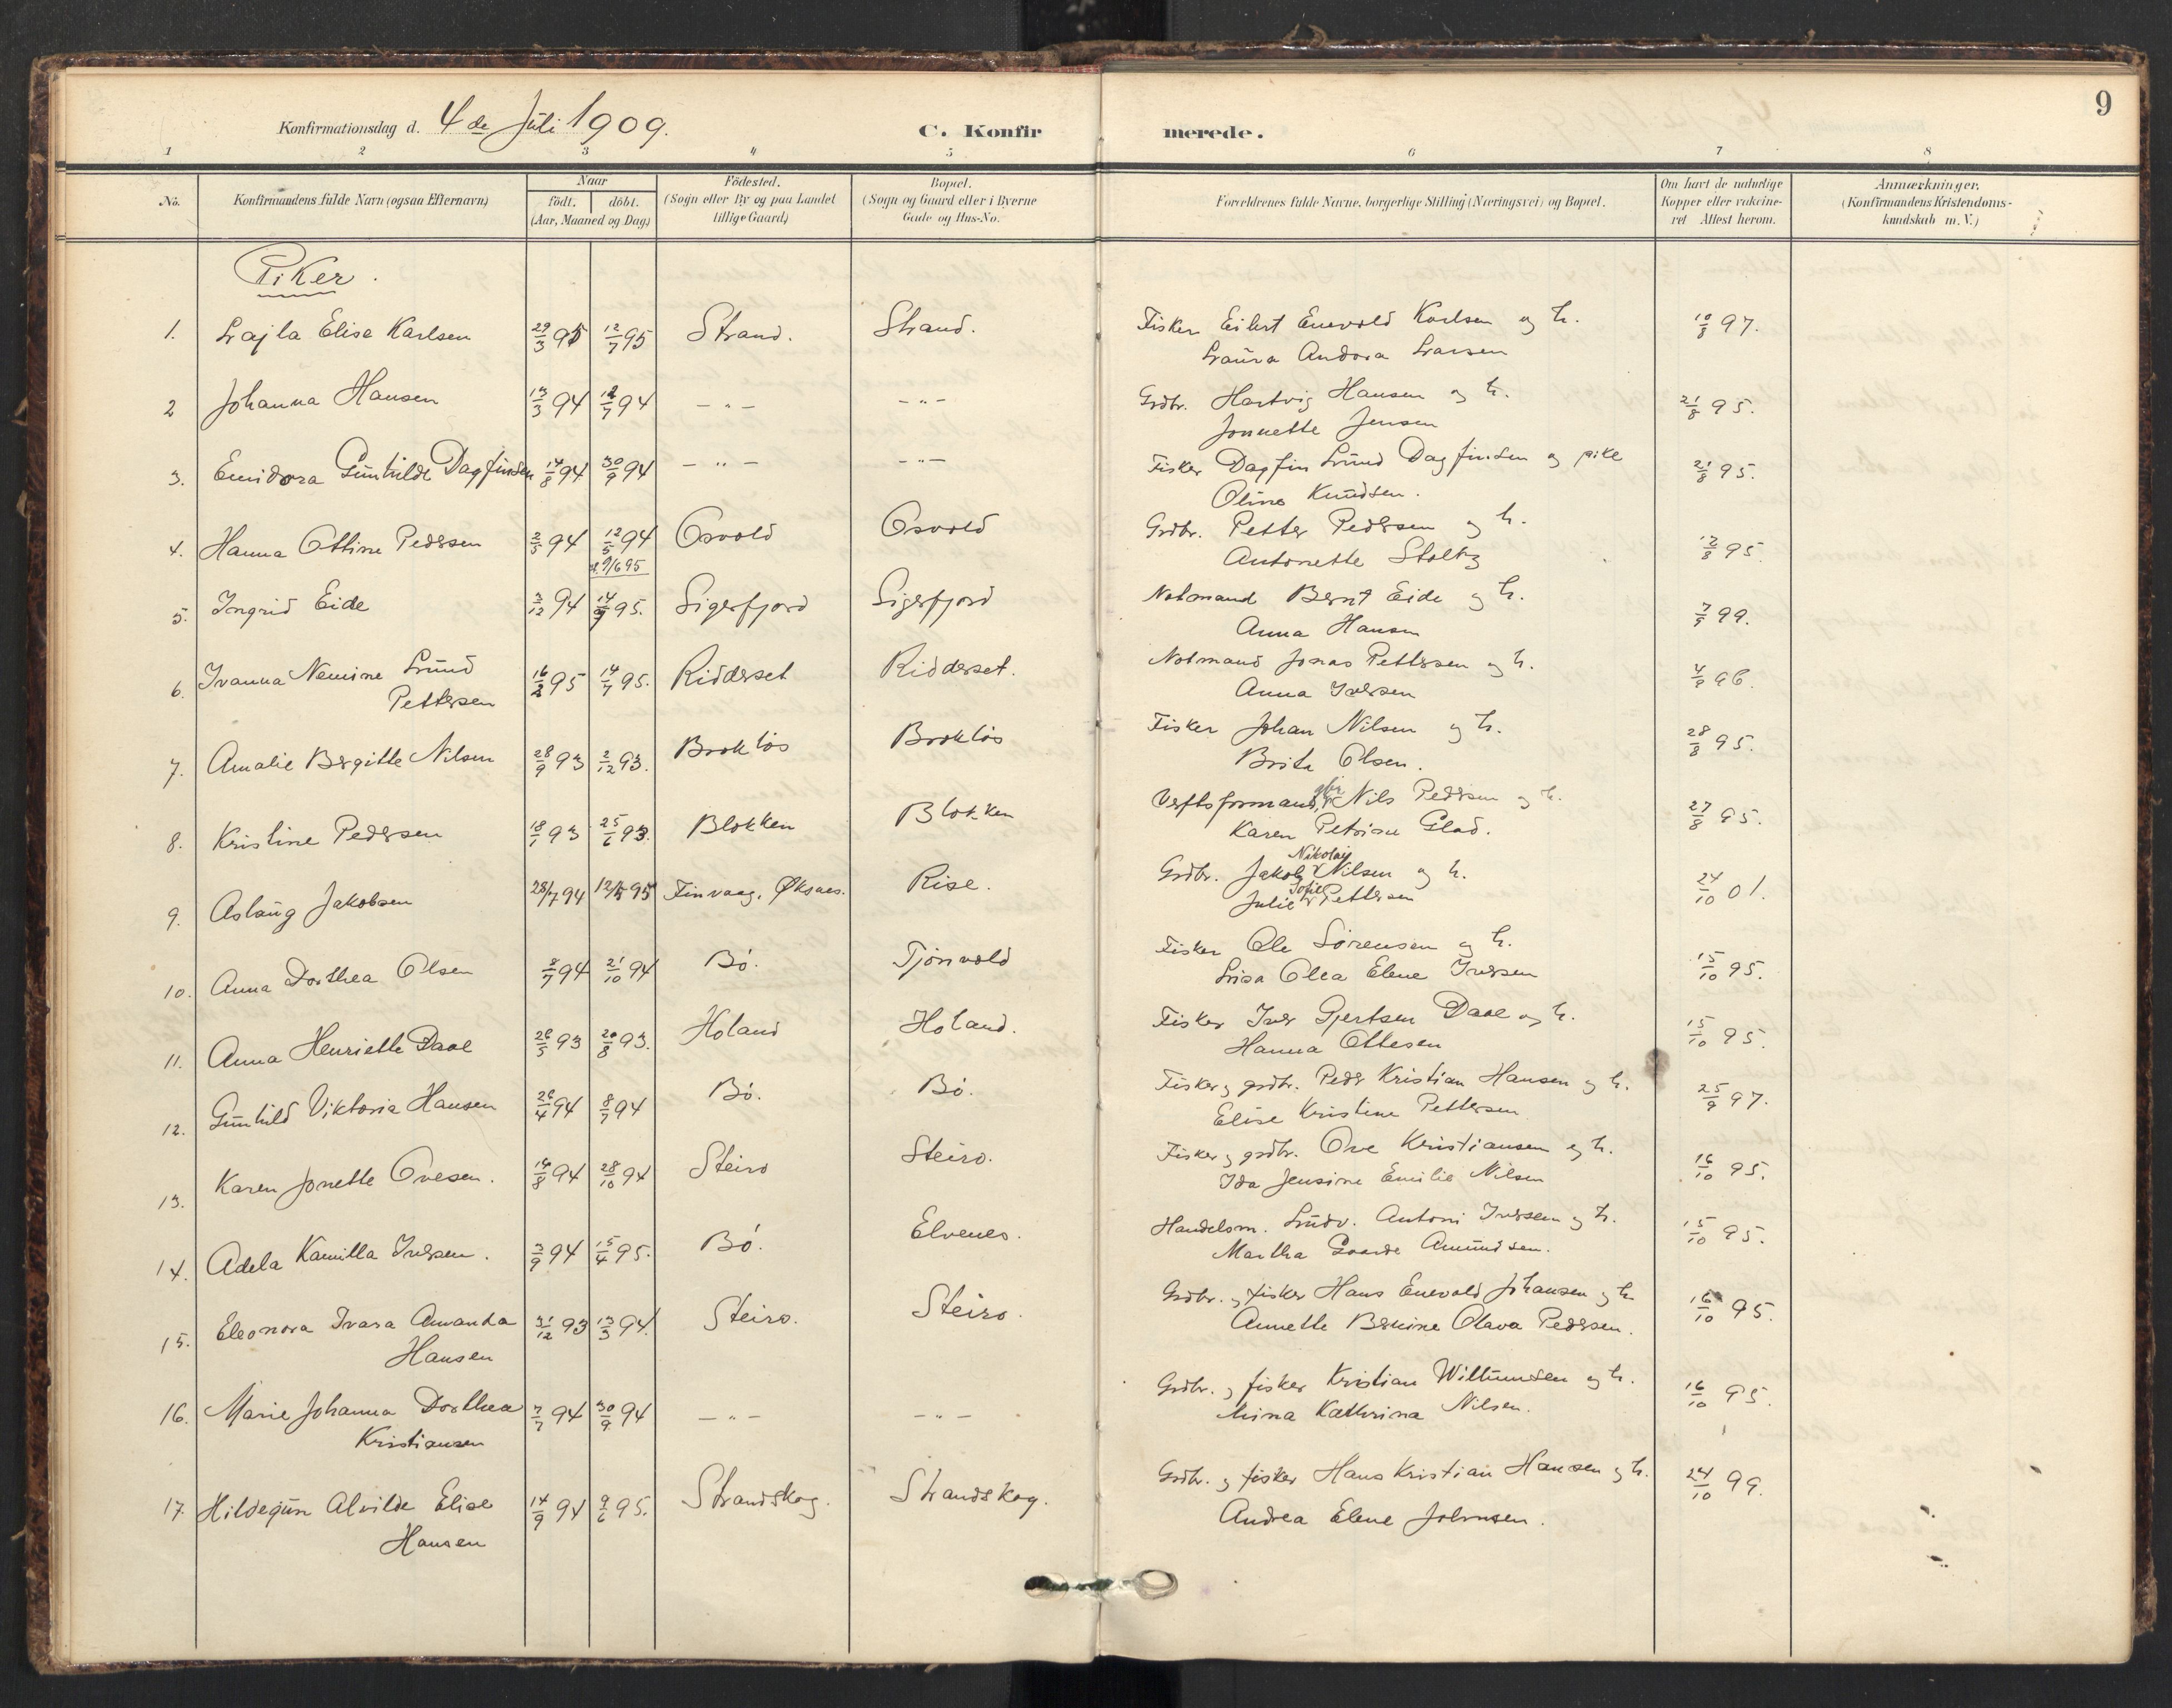 9
Konfirmationsdag d. 4de Juli 1909.
C. Konfirmerede.
1 2 3 4 5 6 7 8
No. Konfirmandens fulde Navn (ogsaa Efternavn) Naar födt. döbt. (Aar, Maaned og Dag) Födested. (Sogn eller By og paa Landet tillige Gaard) Bopæl. (Sogn og Gaard eller i Byerne Gade og Hus-No. Forældrenes fulde Navne, borgerlige Stilling (Næringsvei) og Bopæl. Om havt de naturlige Kopper eller vaccineret Attest herom. Anmærkninger. (Konfirmandens Kristendomskundskab m. V.)
Piker.
1. Lajla Elise Karlsen 29/3 95 12/7 95 Strand. Strand. Fisker Eilert Enevold Karlsen og h. 10/8 97.
Laura Andora Larsen
2 Johanna Hansen 13/3 94 12/7 94 - " - - " - Grdbr. Hartvig Hansen og h. 21/8 95.
Jonnette Jensen
3. Emidora Gunhilde Dagfinsen 14/8 94 30/9 94 - " - - " - Fisker Dagfin Lund Dagfinsen og pike 21/8 95.
Oline Knudsen.
4. Hanna Ottine Pedersen 2/5 94 12/5 94 Osvold Osvold Grdbr. Petter Pedersen og h. 12/8 95.
Antonette Stoltz
9/6 95
5. Ingrid Eide 3/12 94 14/7 95. Sigerfjord Sigerfjord Notmand Bernt Eide og h. 7/9 99.
Anna Hansen
6. Ivanna Nemine Lund 16/2 95 14/7 95. Ridderset Ridderset. Notmand Jonas Pettersen og h. 4/9 96.
Pettersen Anna Iversen
7. Amalie Bergitte Nilsen 28/9 93 2/12 93. Brokløs Brokløs Fisker Johan Nilsen og h. 28/8 95.
Brita Olsen.
8. Kristine Pedersen 18/1 93 25/6 93. Blokken Blokken Verftsformand, Nils Pedersen og h. 27/8 95.
Karen Petrine Glad.
Nikolaj
9. Aslaug Jakobsen 28/7 94 12/5 95 Finvaag, Øksnes. Rise. Grdbr. Jakob Nilsen og h. 24/10 01.
Sofie
Julie Pettersen
10. Anna Dorthea Olsen 8/7 94 21/10 94 Bø. Tjønvold Fisker Ole Sørensen og h. 15/10 95.
Lisa Olea Elene Iversen
11. Anna Henriette Daae 26/5 93 20/8 93. Holand Holand. Fisker Iver Gjertsen Daae og h. 15/10 95.
Hanna Ottesen
12. Gunhild Viktoria Hansen 26/4 94 8/7 94 Bø. Bø. Fisker og grdbr. Peder Kristian Hansen og h. 25/9 97.
Elise Kristine Pettersen
13. Karen Jonette Ovesen. 16/8 94 28/10 94 Steiro Steiro. Fisker og grdbr. Ove Kristiansen og h. 16/10 95.
Ida Jensine Emilie Nilsen
14. Adela Kamilla Iversen. 3/9 94 15/4 95. Bø. Elvenes. Handelsm. Ludv. Antoni Iversen og h. 15/10 95.
Martha Gaarde Amundsen.
15. Eleonora Ivara Amanda 31/12 93 13/3 94. Steiro. Steiro. Grdbr. og fisker Hans Enevold Johansen og h. 16/10 95.
Hansen Annette Bernine Olava Pedersen.
16. Marie Johanna Dorthea 7/7 94 30/9 94 - " - - " - Grdbr. og fisker Kristian Willumsen og h. 16/10 95.
Kristiansen Mina Kathrina Nilsen.
17. Hildegun Alvilde Elise 14/9 94 9/6 95. Strandskog. Strandskog. Grdbr. og fisker Hans Kristian Hansen og h. 24/10 99.
Hansen Andrea Elene Johnsen.